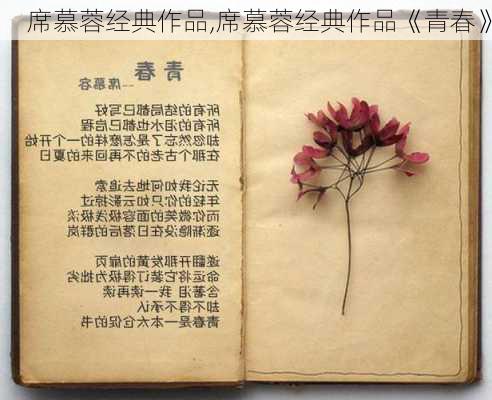 席慕蓉经典作品,席慕蓉经典作品《青春》
青春
---席慕容
所有的结局都已写好
所有的泪水也都已启程
却忽然忘了是怎么样的一个开始
在那个古老的不再回来的夏日
无论我如何地去追索
年轻的你只如云影掠过
而你微笑的面容极浅极淡
逐渐隐没在日落后的群岚
遂翻开那发黄的扉页
命运将它装订得极为拙劣
含著泪 我一读再读
却不得不承认
青春是一本太仓促的书